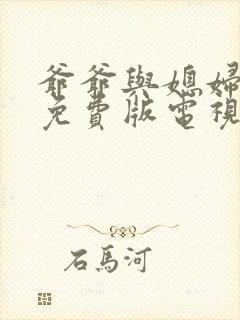 爺爺與媳婦
免費版電視
石馬河